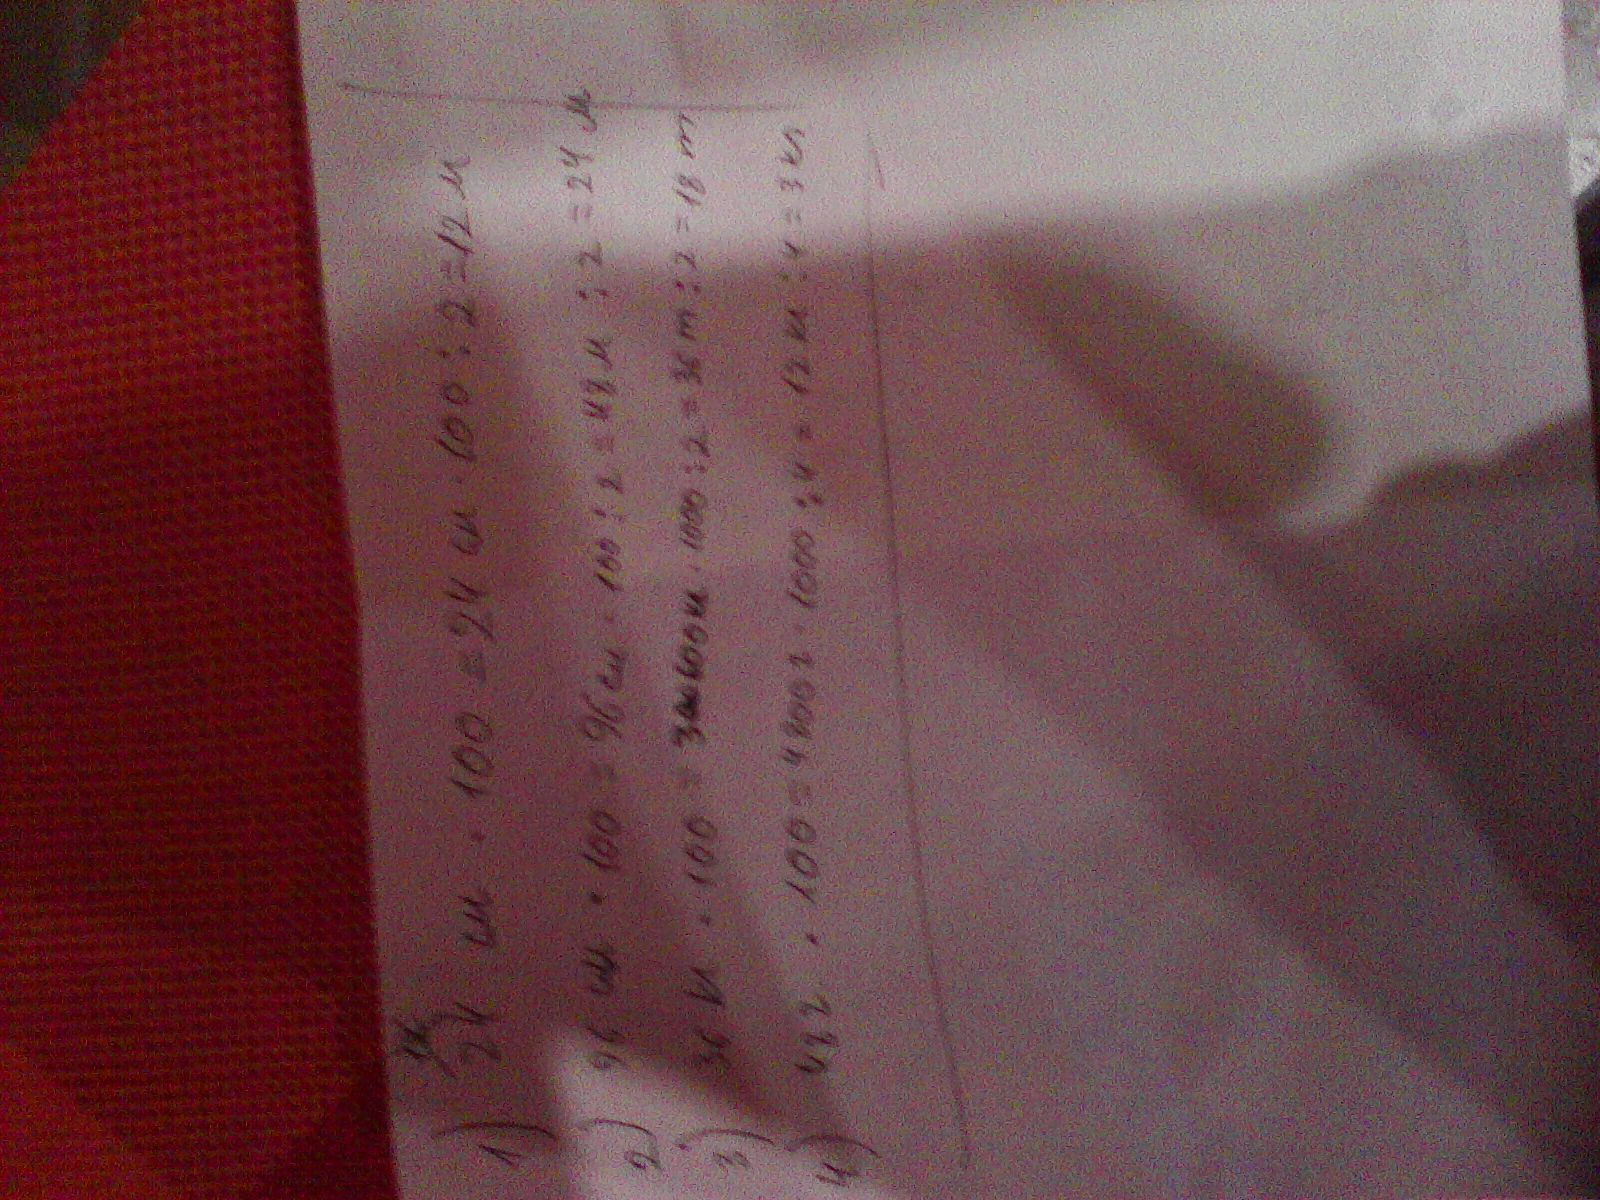 1) 24 см · 100 = 24 см · 100 : 2 = 12 м
2) 96 см · 100 = 96 см · 100 : 2 = 48 м : 2 = 24 м
3) 36 · 100 = · 1000 : 2 = 36 т : 2 = 18 т
4) 48 г · 100 = 4800 г · 1000 : 4 = 12 : 4 = 3